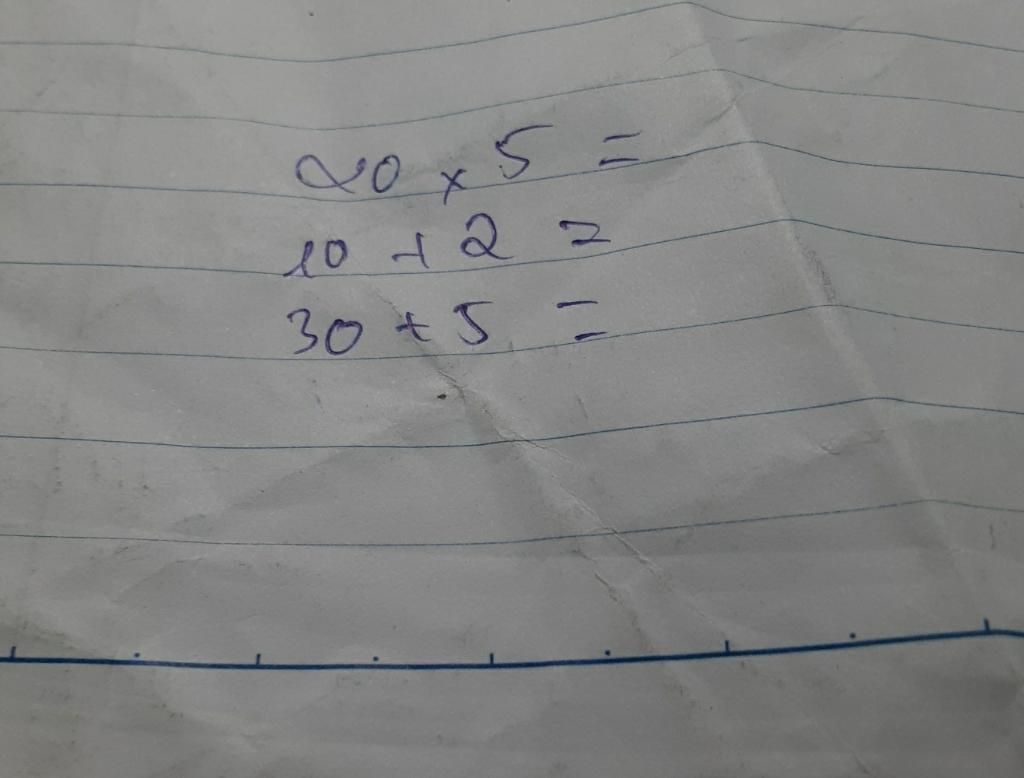 20 x 5 =
10 + 2 =
30 + 5 =